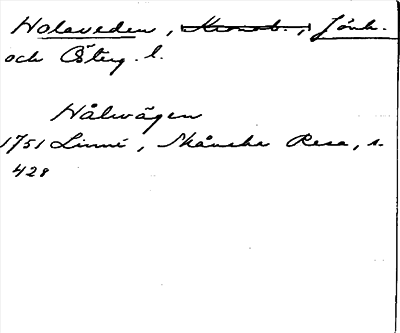 Holaveden, Kronob., Jönk.
och Österg. l.
Hålwägen
1751 Linné, Skånska Resa, s.
428